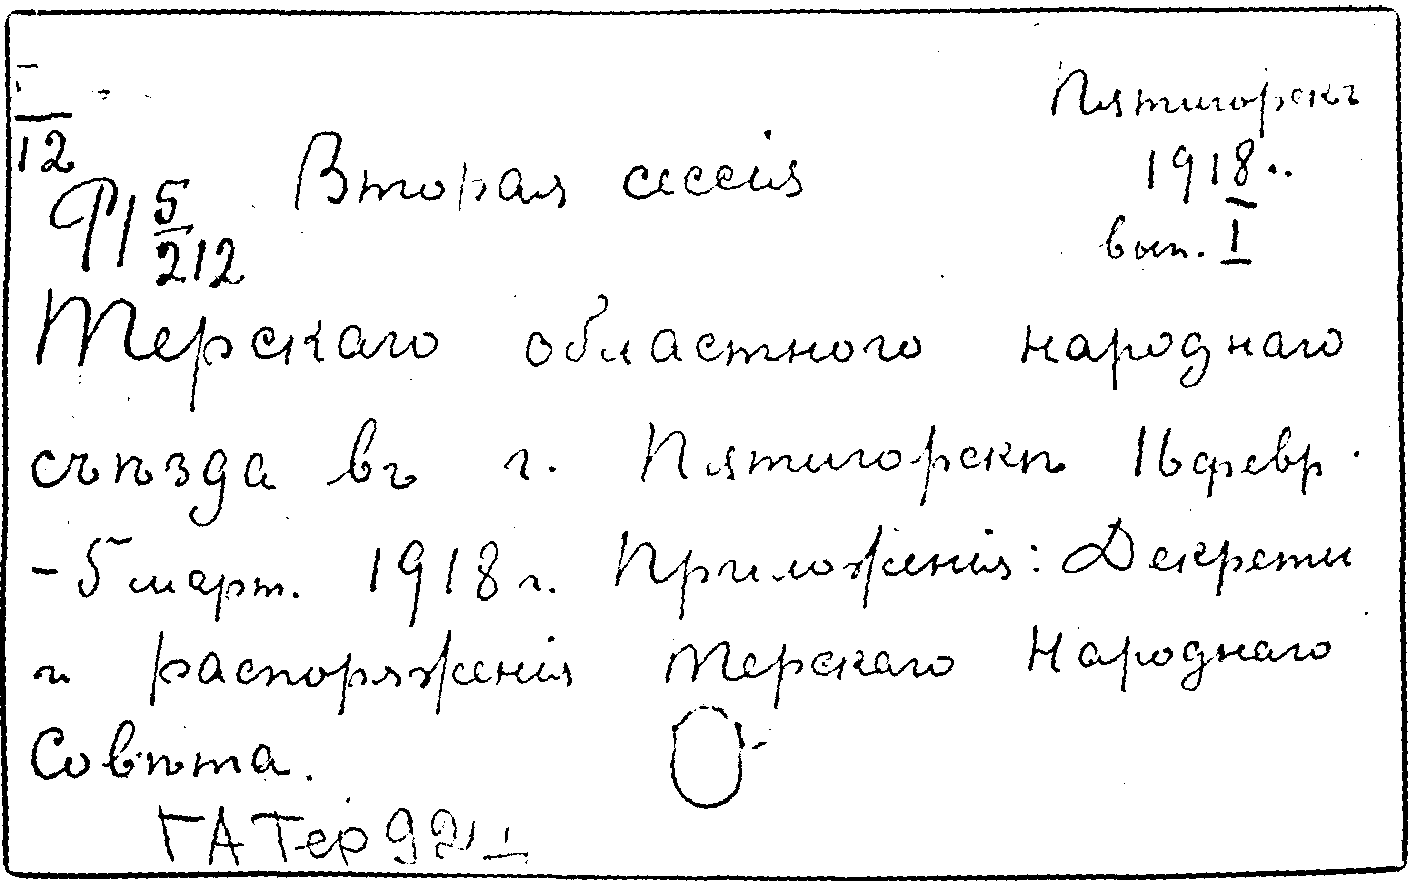 Пятигорскъ
12
Вторая сессія
1918.
Ф1 5/212
вып. I
Терскаго областного народнаго
съѣзда въ г. Пятигорскѣ 16 февр.
- 5 март. 1918 г. Приложенія: Декреты
и распоряженія Терскаго Народнаго
Совѣта.
ГА Тер 92